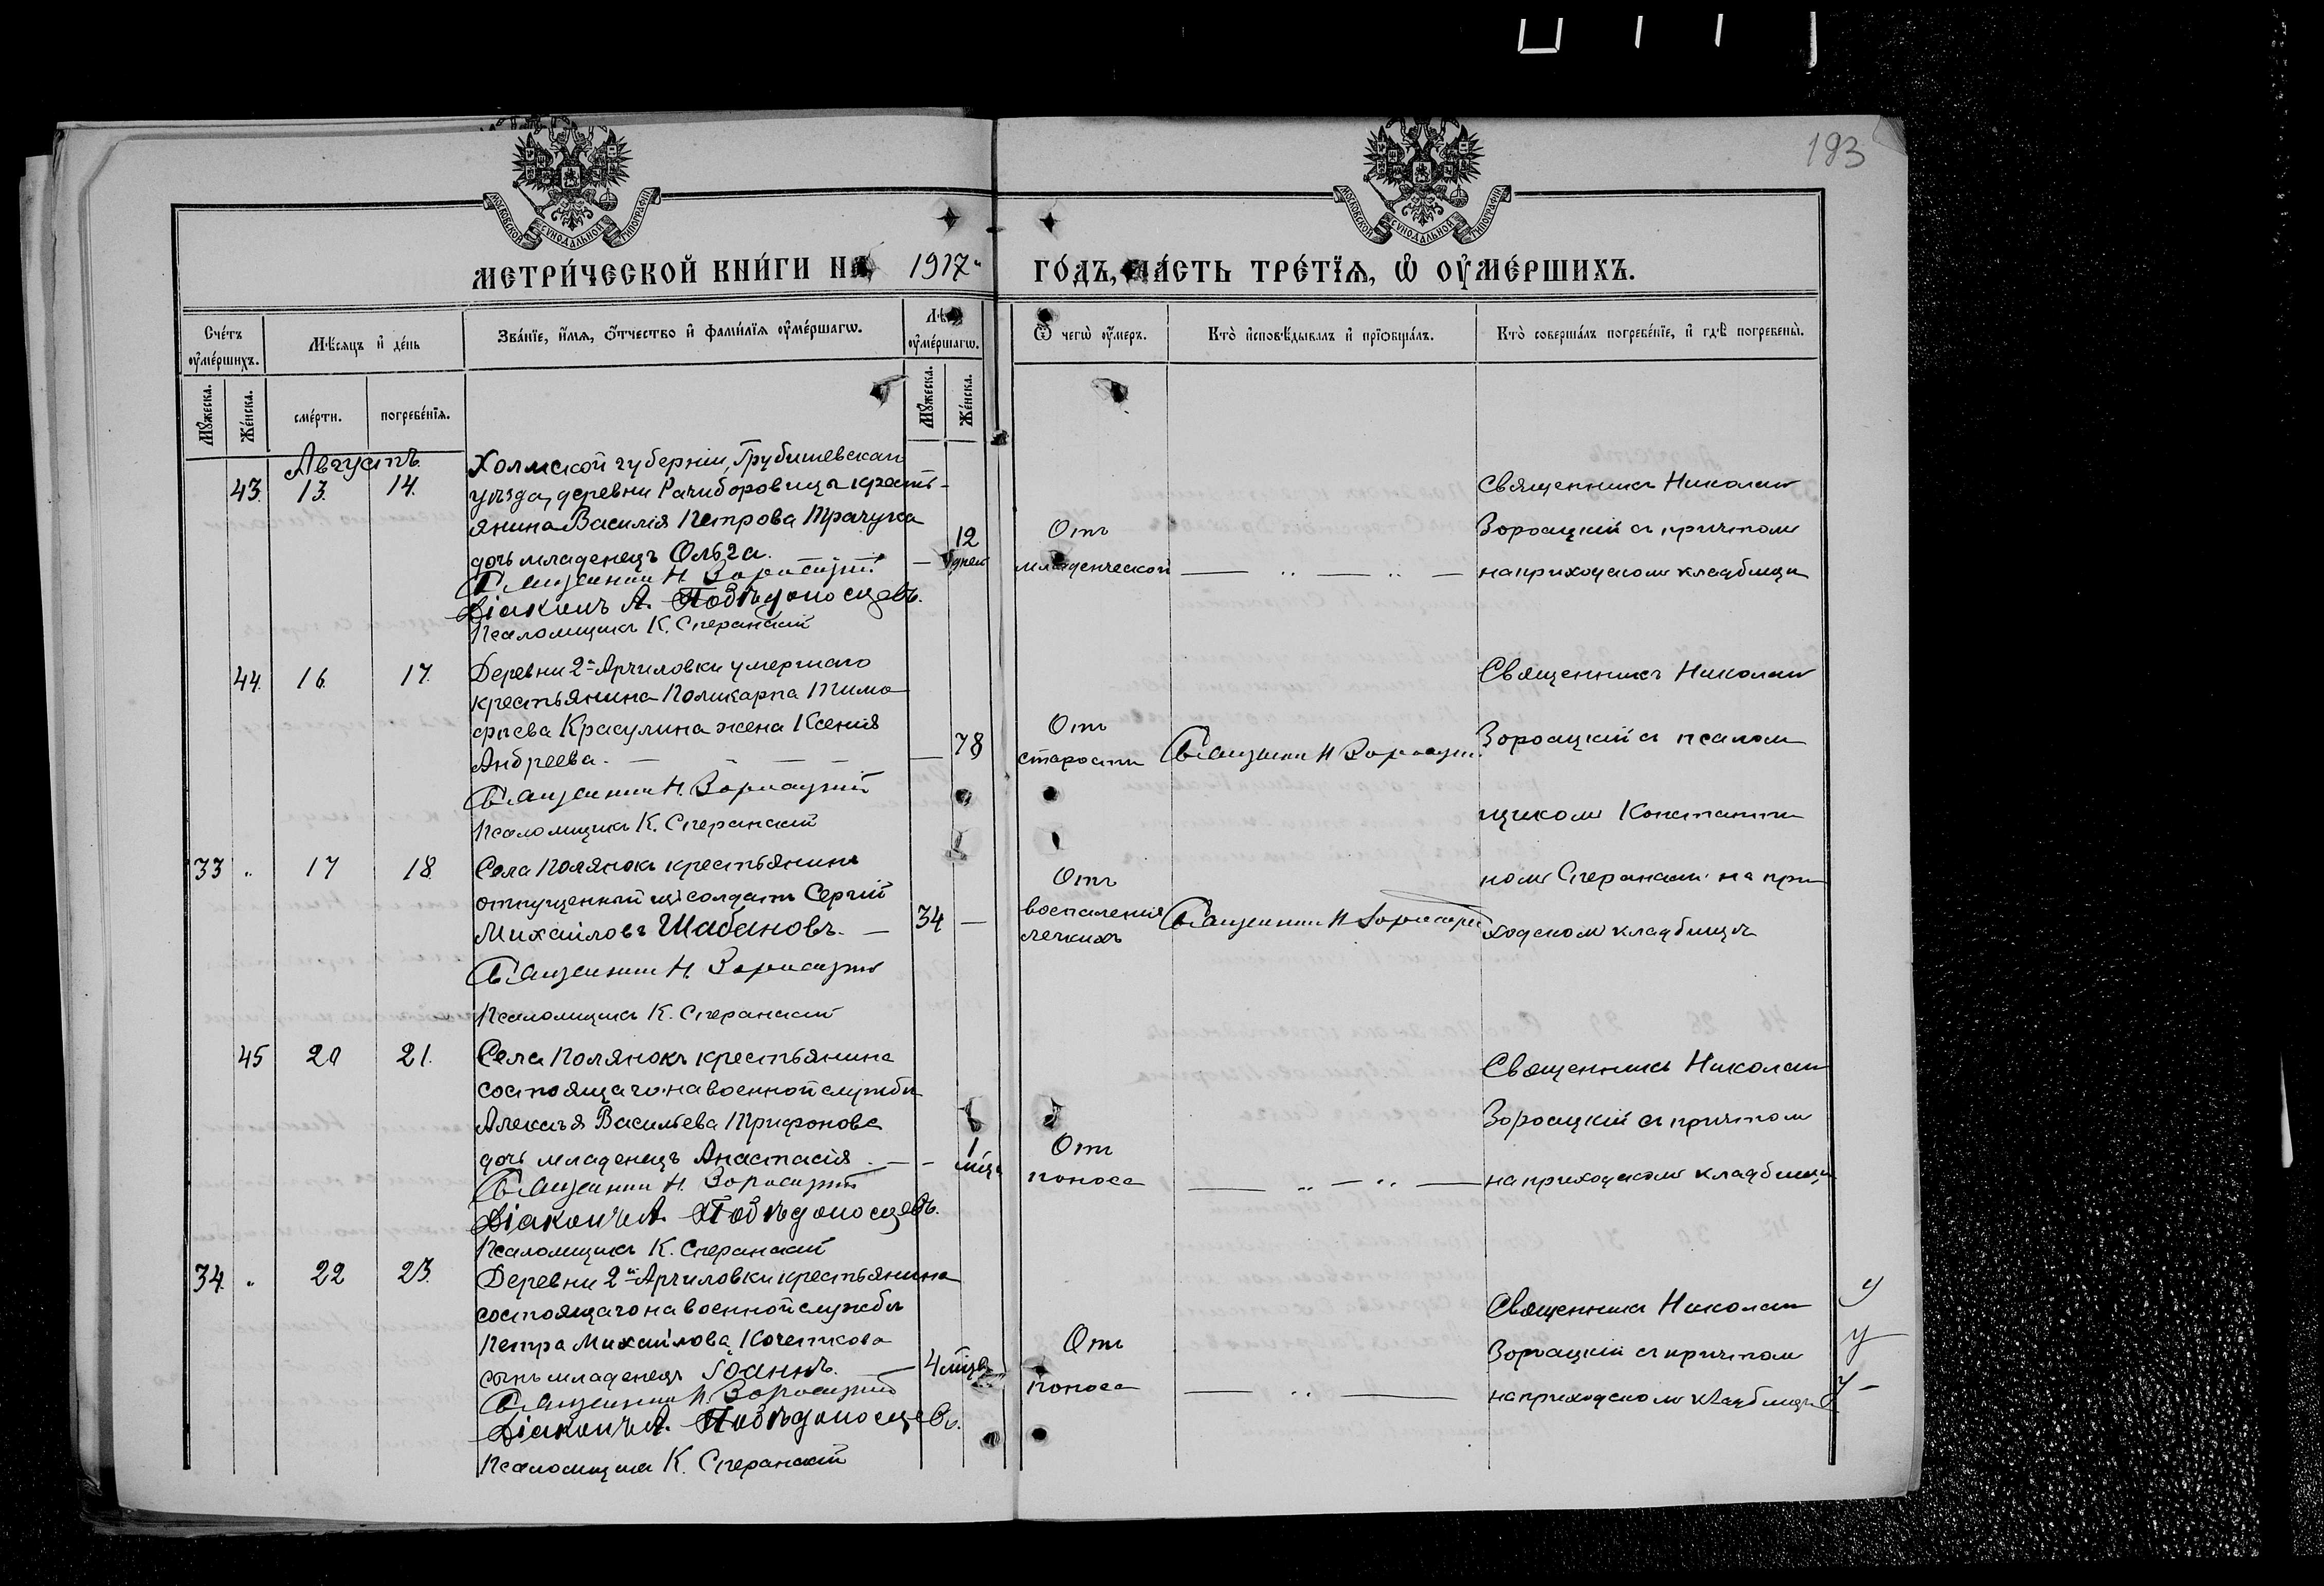 193
МОСКОВСКОЙ СѴНОДАЛЬНОЙ ТИПОГРАФІИ
МОСКОВСКОЙ СѴНОДАЛЬНОЙ ТИПОГРАФІИ
МЕТРИ́ЧЕСКОЙ КНИ́ГИ НА 1917 ГО́ДЪ, ЧА́СТЬ ТРЕ́ТЇѦ, Ѡ҆ ОУ҆МЕ́РШИХЪ.
Сче́тъ оу҆ме́ршихъ.
Мѣ́сяцъ и҆ де́нь
Зва́нїе, и҆́мѧ, ѻ҆́тчество и҆ фами́лїѧ оу҆ме́ршагѡ.
Лѣ оу҆ме́ршагѡ.
Ѿ чегѡ̀ оу҆́меръ.
Кто̀ и҆сповѣ́дывалъ и҆ прїѡбща́лъ.
Кто̀ соверша́лъ погребе́нїе, и҆ гдѣ̀ погребены̀.
Мꙋ́жеска.
Же́нска.
сме́рти.
погребе́нїѧ.
Мꙋ́жеска.
Же́нска.
Августъ
43. 13. 14.
Холмской губерніи, Грубешевскаго
уѣзда, деревни Рачиборовицы кресть-
янина Василія Петрова Трачука
дочь младенецъ Ольга.
Священникъ Н. Зороацкій
Діаконъ А. Побѣдоносцевъ.
Псаломщикъ К. Сперанскій
— 12 дней
Отъ
младенческой
— .. — .. —
Священникъ Николай
Зороацкій съ причтомъ
на приходскомъ кладбищѣ
44. 16. 17.
Деревни 2й Арчиловки умершаго
крестьянина Поликарпа Тимо
фѣева Красулина жена Ксенія
Андреева. — — — —
Священникъ Н. Зороацкій
Псаломщикъ К. Сперанскій
— 78
Отъ
старости
Священникъ Н Зороацкій
Священникъ Николай
Зороацкій съ псалом
щикомъ Константи
номъ Сперанскимъ на при
ходскомъ кладбищѣ
33 .. 17 18.
Села Полянокъ крестьянинъ
отпущенный солдатъ Сергій
Михайловъ Шабановъ. —
Священникъ Н. Зороацкій
Псаломщикъ К. Сперанскій
34 —
Отъ
воспаленія
легкихъ
Священникъ Н Зороацкій
45 20 21.
Села Полянокъ крестьянина
состоящаго на военной службѣ
Алексѣя Васильева Трифонова
дочь младенецъ Анастасія. —
Священникъ Н. Зороацкій
Діаконъ А. Побѣдоносцевъ.
Псаломщикъ К. Сперанскій
- 1 мѣца
Отъ
поноса
— .. — .. —
Священникъ Николай
Зороацкій съ причтомъ
на приходскомъ кладбищѣ
34. .. 22 23.
Деревни 2й Арчиловки крестьянина
состоящаго на военной службѣ
Петра Михайлова Кочеткова
сынъ младенецъ Іоаннъ. —
Священникъ Н. Зороацкій
Діаконъ А. Побѣдоносцевъ.
Псаломщикъ К. Сперанскій
4 мѣца
Отъ
поноса
— .. —
Священникъ Николай
Зороацкій съ причтомъ
на приходскомъ кладбищѣ